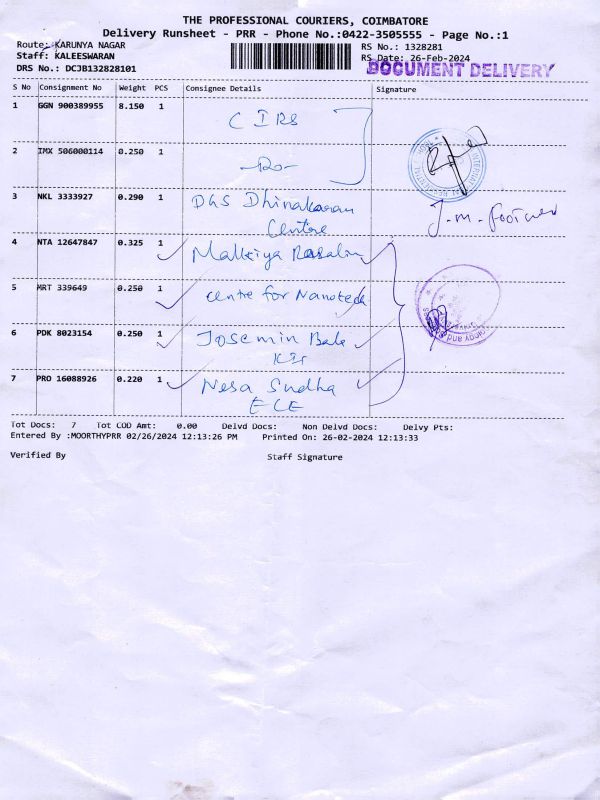 THE PROFESSIONAL COURIERS, COIMBATORE
Delivery Runsheet - PRR - Phone No.:0422-3505555 - Page No.:1
Route: KARUNYA NAGAR
Staff: KALEESWARAN
DRS No.: DCJB132828101
RS No.: 1328281
RS Date: 26-Feb-2024
DOCUMENT DELIVERY
S No Consignment No Weight PCS Consignee Details Signature
1 GGN 900389955 8.150 1 CIRS
2 IMX 506000114 0.250 1 -Do-
3 NKL 3333927 0.290 1 DGS Dhinakaran
Centre
4 NTA 12647847 0.325 1 Malkiya Rasalin
5 MRT 339649 0.250 1 Centre for Nanotech
6 PDK 8023154 0.250 1 Josemin Bala
7 PRO 16088926 0.220 1 Nesa Sudha
ECE
Tot Docs: 7 Tot COD Amt: 0.00 Delvd Docs: Non Delvd Docs: Delvy Pts:
Entered By :MOORTHYPRR 02/26/2024 12:13:26 PM Printed On: 26-02-2024 12:13:33
Verified By Staff Signature